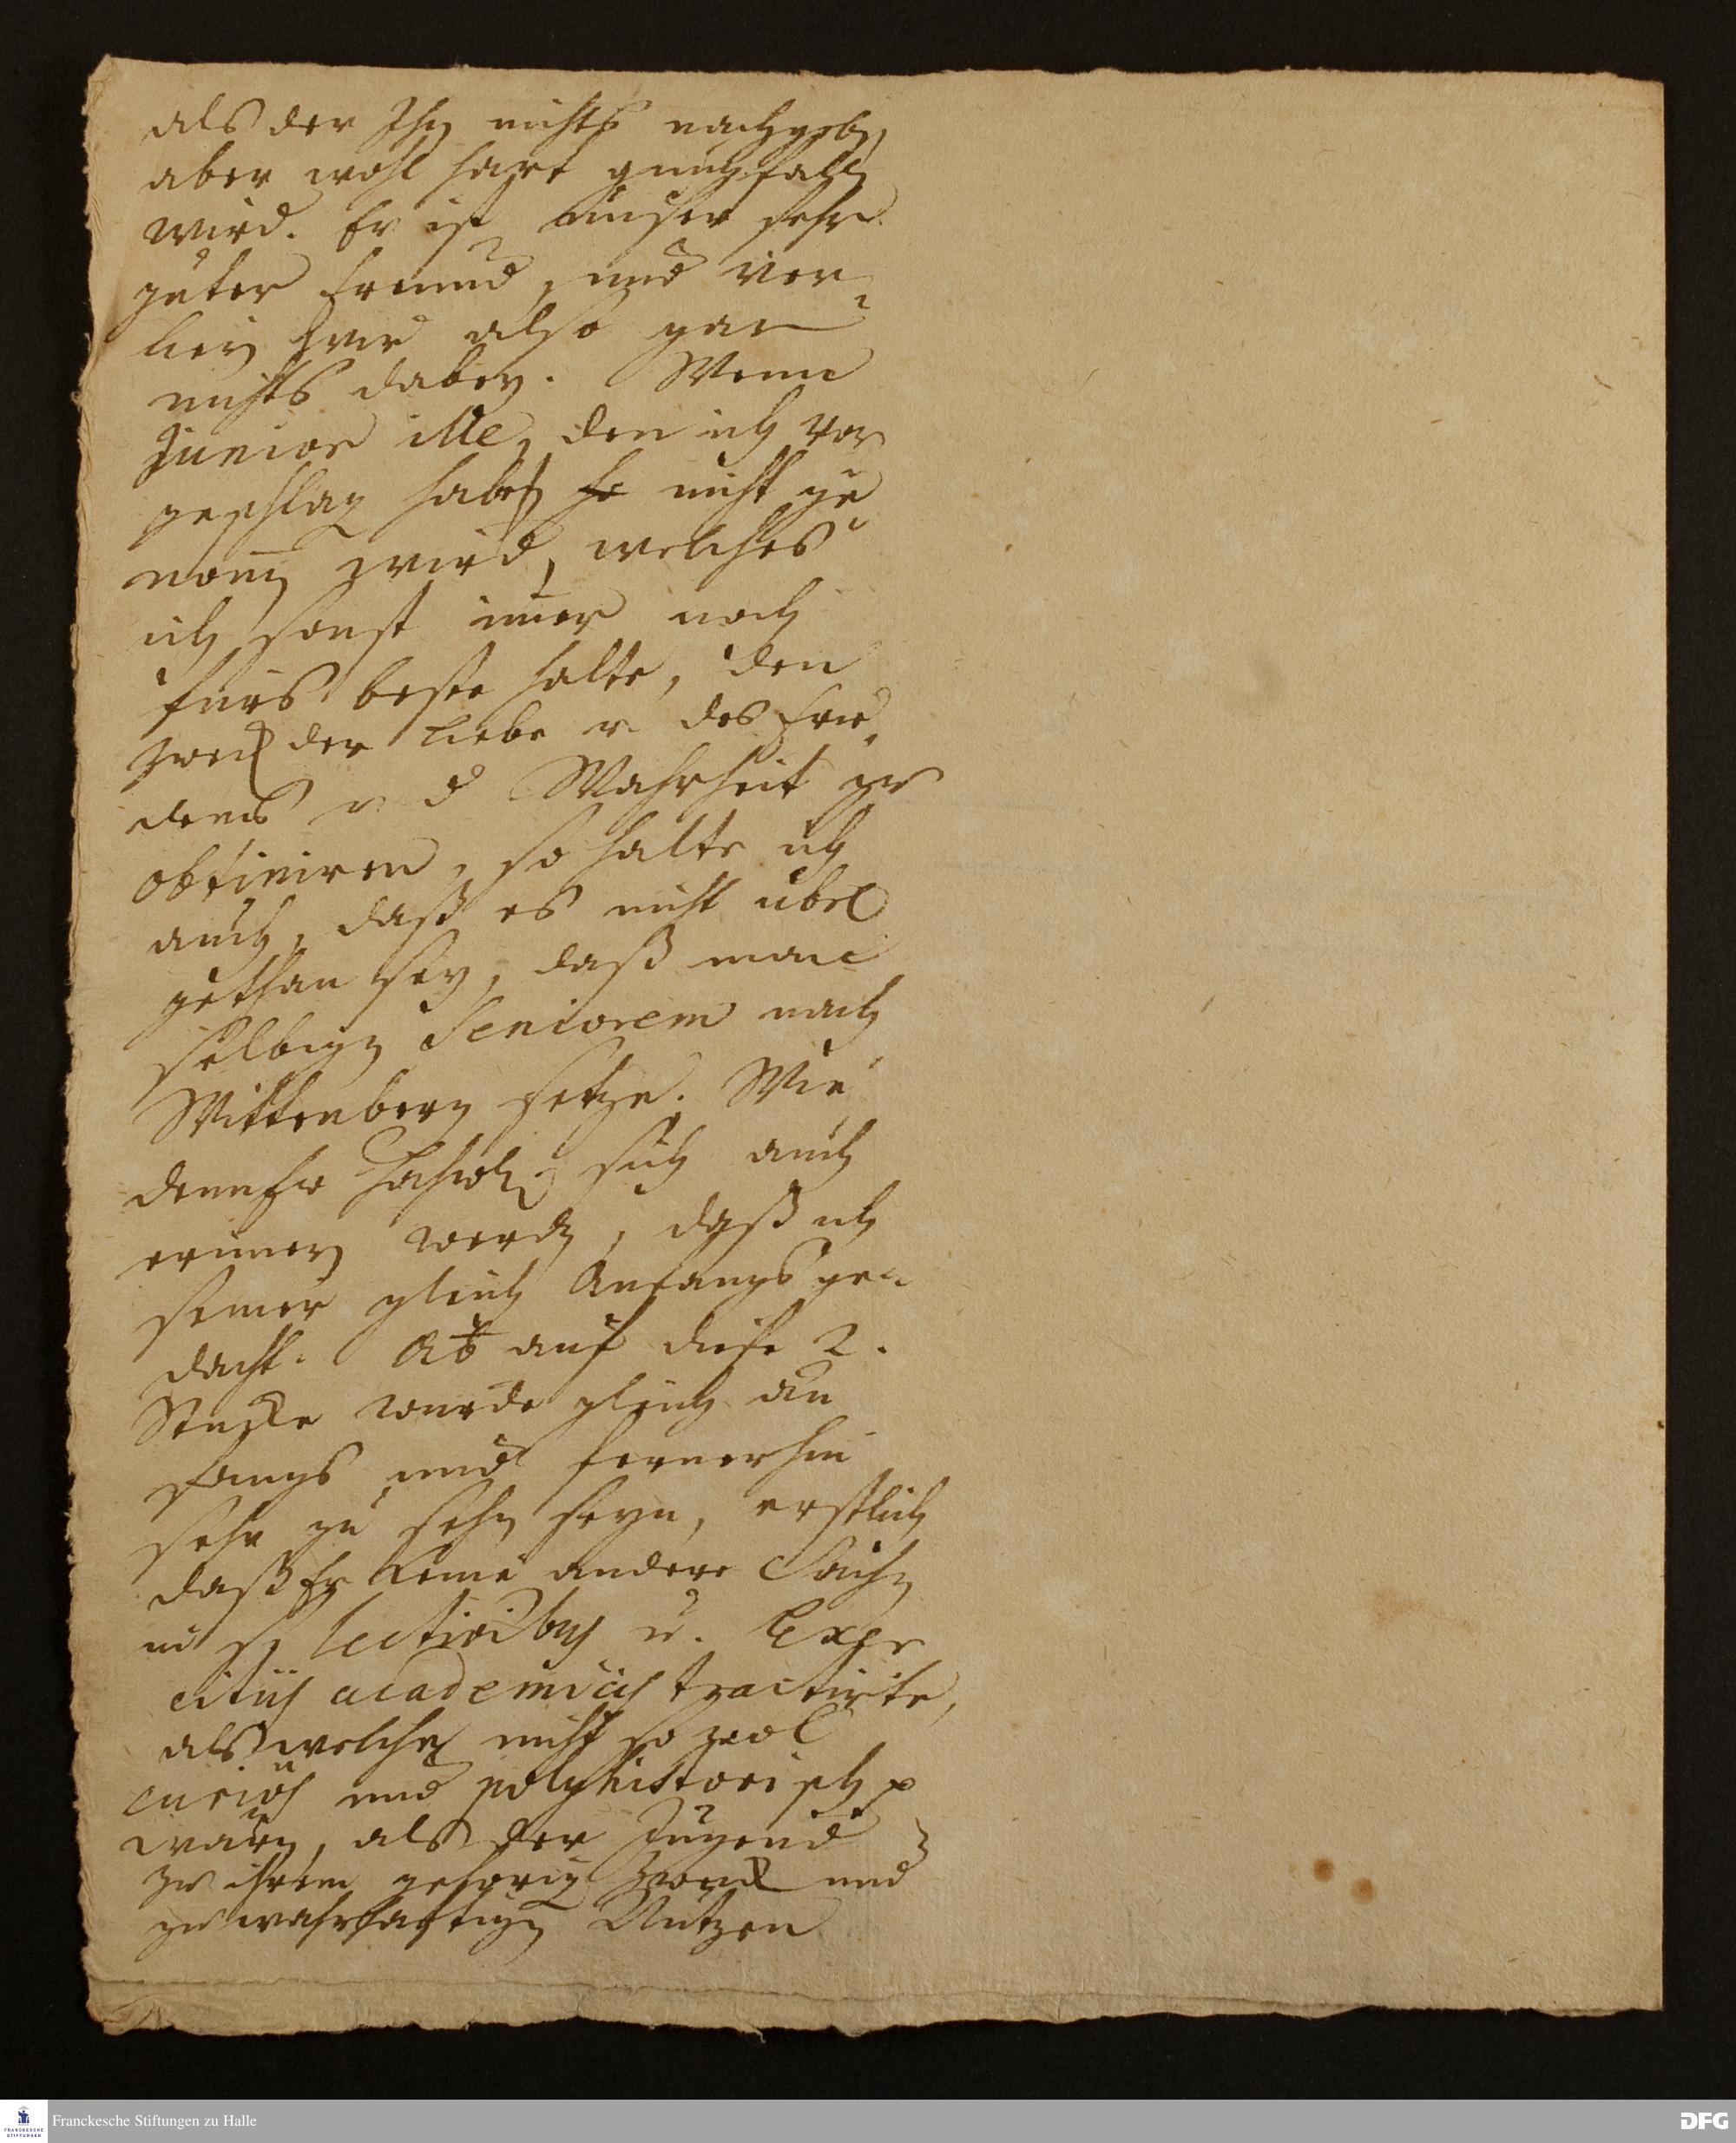 als der Ihn nichts nachgeb,
aber wohl hart
wird. Er ist unser sehr
guter Freund, und ver-
lieren wir also gar
nichts dabey. Wenn
Junior ille, den ich vor
geschlagen habe, nicht ge
nomen wird, welches
ich sonst imer noch
fürs beste halte, den
Zweck der Liebe u. des Frie-
dens u. d Wahrheit zu
obtiniren, so halte ich
auch, daß es nicht übel
gethan sey, daß man
selbigen Seniorem nach
Wittenberg setze. Wie
denn Er sich auch
erinnern werden, daß ich
seiner gleich Anfangs ge-
dacht. Ab auf diese 2.
Stücke würde gleich an
fangs und fernerhin
sehr zu sehen seyn, erstlich
daß Er keine andere Sachen
in lectionibus u. Exer
citiis academicis tractirte,
als welche nicht so wol
curiös und polyhistorisch
wären, als der Jugend
zu ihrem gehörigen Zweck und
zu wahrhaftigen Nutzen
Franckesche Stiftungen zu Halle
FRANCKESCHE
STIFTUNGEN
DFG